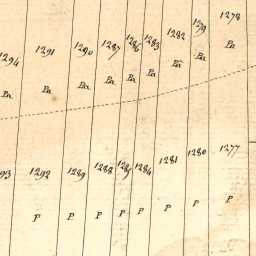 1294 1291 1290 1287 1286 1283 1282 1279 1278
Pa Pa Pa Pa Pa Pa Pa Pa Pa
93 1292 1289 1288 1285 1284 1281 1280 1277
P P P P P P P P